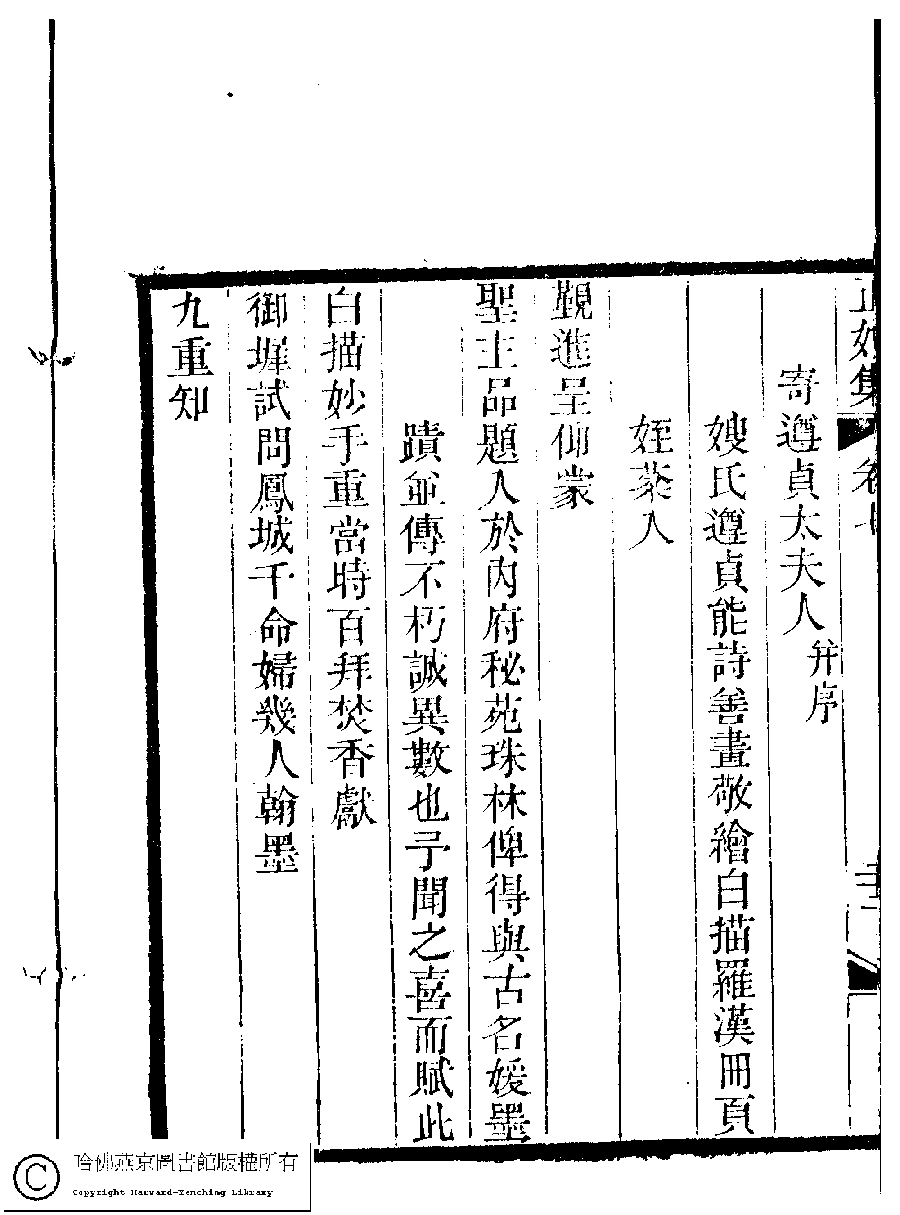 正始集 卷七
寄遵貞太夫人 并序
嫂氏遵貞能詩善畫敬繪白描羅漢冊頁
姪棻入
覲進呈仰蒙
聖主品題入於內府秘苑珠林俾得與古名媛墨
蹟並傳不朽誠異數也予聞之喜而賦此
白描妙手重當時百拜焚香獻
御墀試問鳳城千命婦幾人翰墨
九重知
哈佛燕京圖書館版權所有
Copyright Harvard-Yenching Library